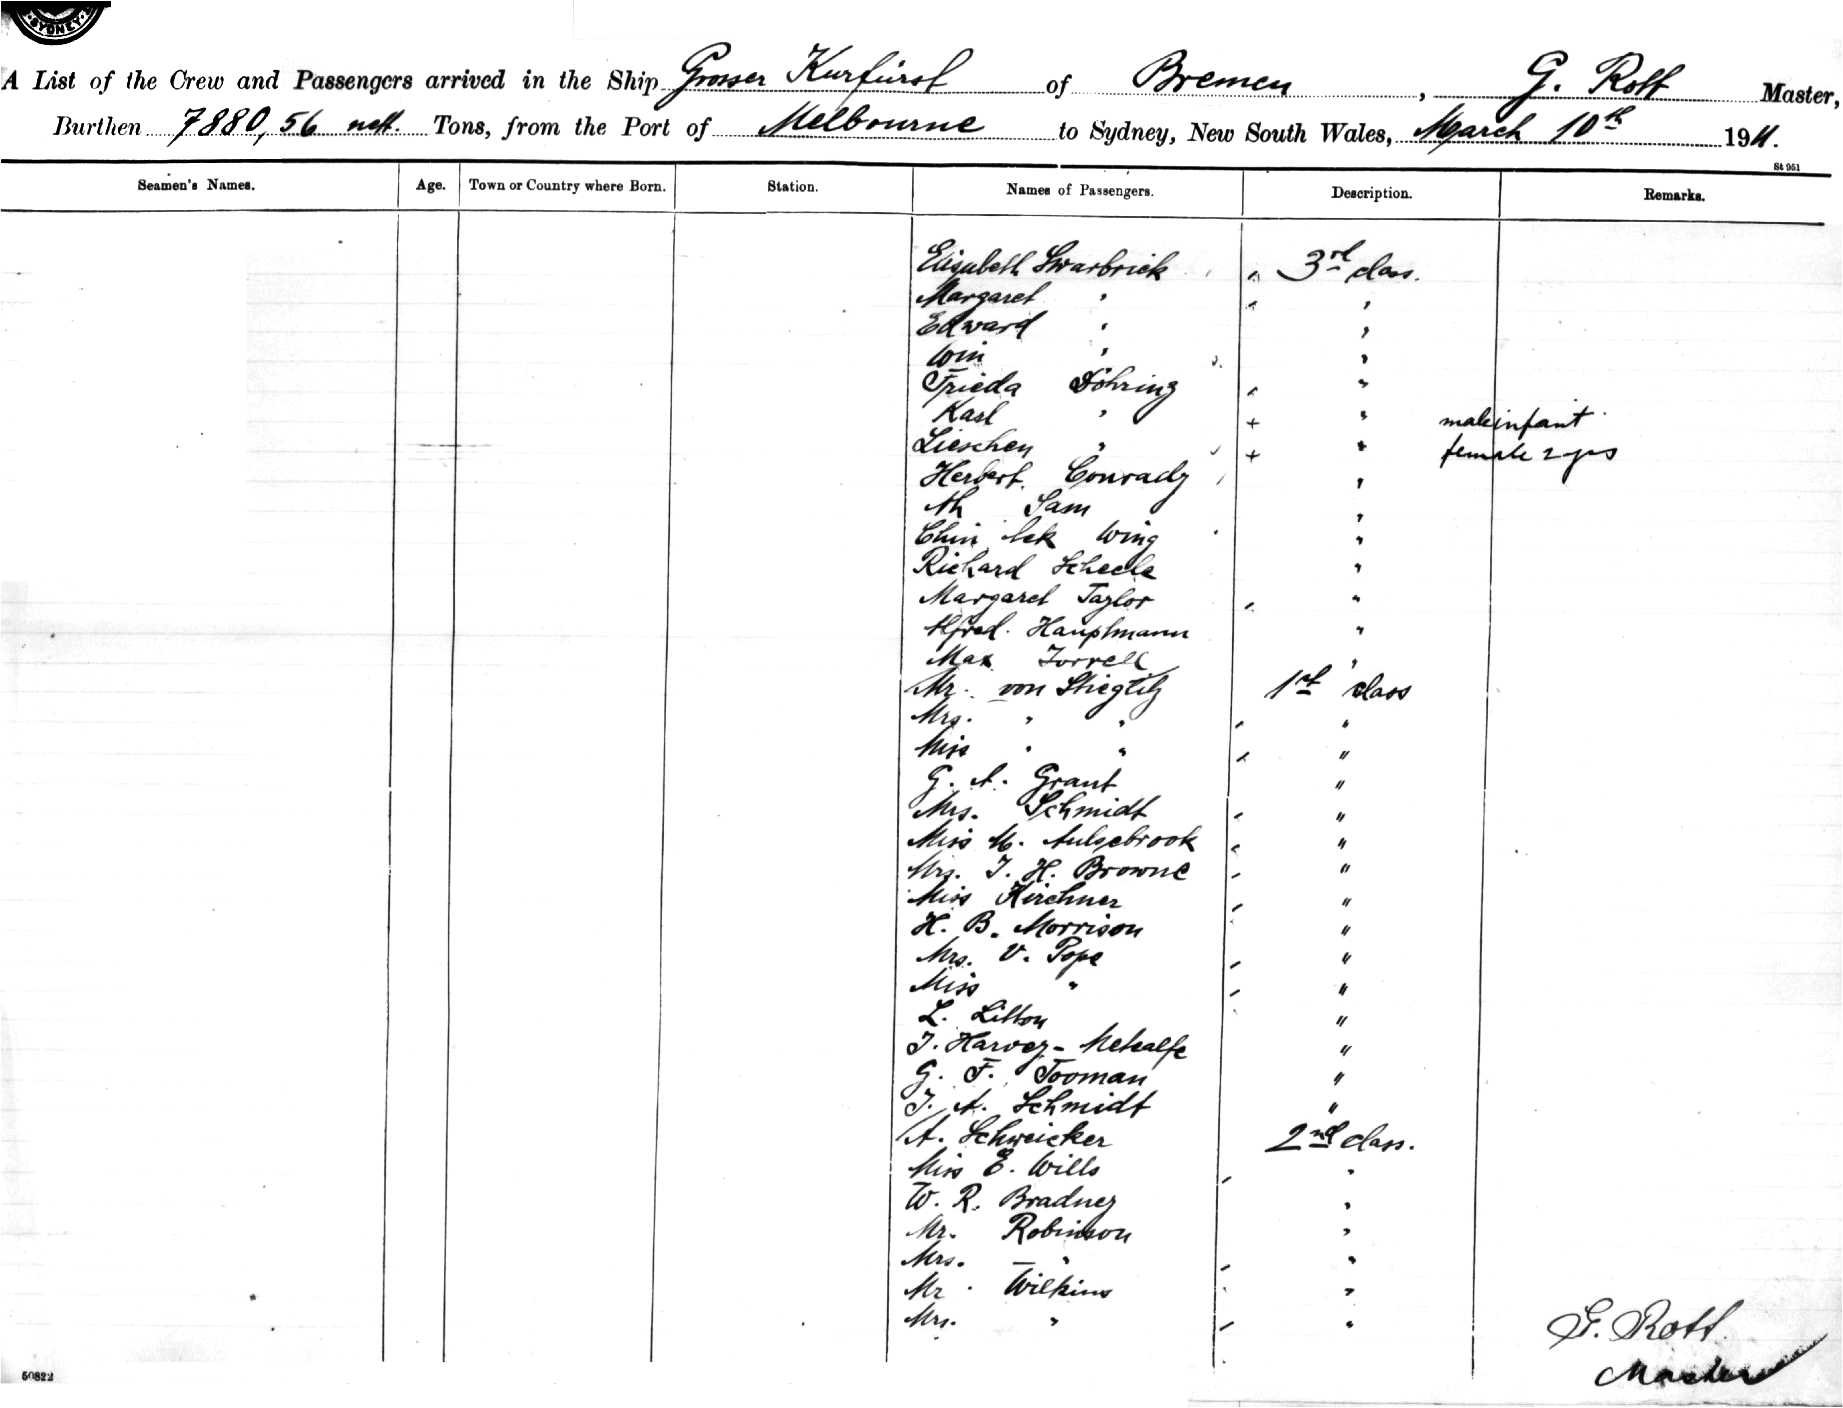 SYDNEY
A List of the Crew and Passengers arrived in the Ship Grosser Kurfürst of Bremen, G. Rott Master,
Burthen 7880,56 nett. Tons, from the Port of Melbourne to Sydney, New South Wales, March 10th 1911.
St 951
Seamen's Names. Age. Town or Country where Born. Station. Names of Passengers. Description. Remarks.
Elisabeth Swarbrick 3rd class.
Margaret " "
Edward " "
Win " "
Frieda Döhring "
Karl " " male infant
Lieschen " " female 2 yrs
Herbert Conrady "
Ah Sam "
Chin Wing "
Richard Scheele "
Margaret Taylor "
Alfred Hauptmann "
Max "
Mr. von Stieglitz 1st class
Mrs. " " "
Miss " " "
G. A. Grant "
Mrs. Schmidt "
Miss M. Aulsebrook "
Mrs. T. H. Browne "
Miss Kirchner "
H. B. Morrison "
Mrs. V. Pope "
Miss " "
L. Litton "
T. Harvey-Metcalfe "
G. F. Tooman "
T. A. Schmidt "
A. Schweicker 2nd class.
Miss E. Wills "
W. R. Bradney "
Mr. Robinson "
Mrs. " "
Mr. Wilkins "
Mrs. " "
G. Rott
Master
50822